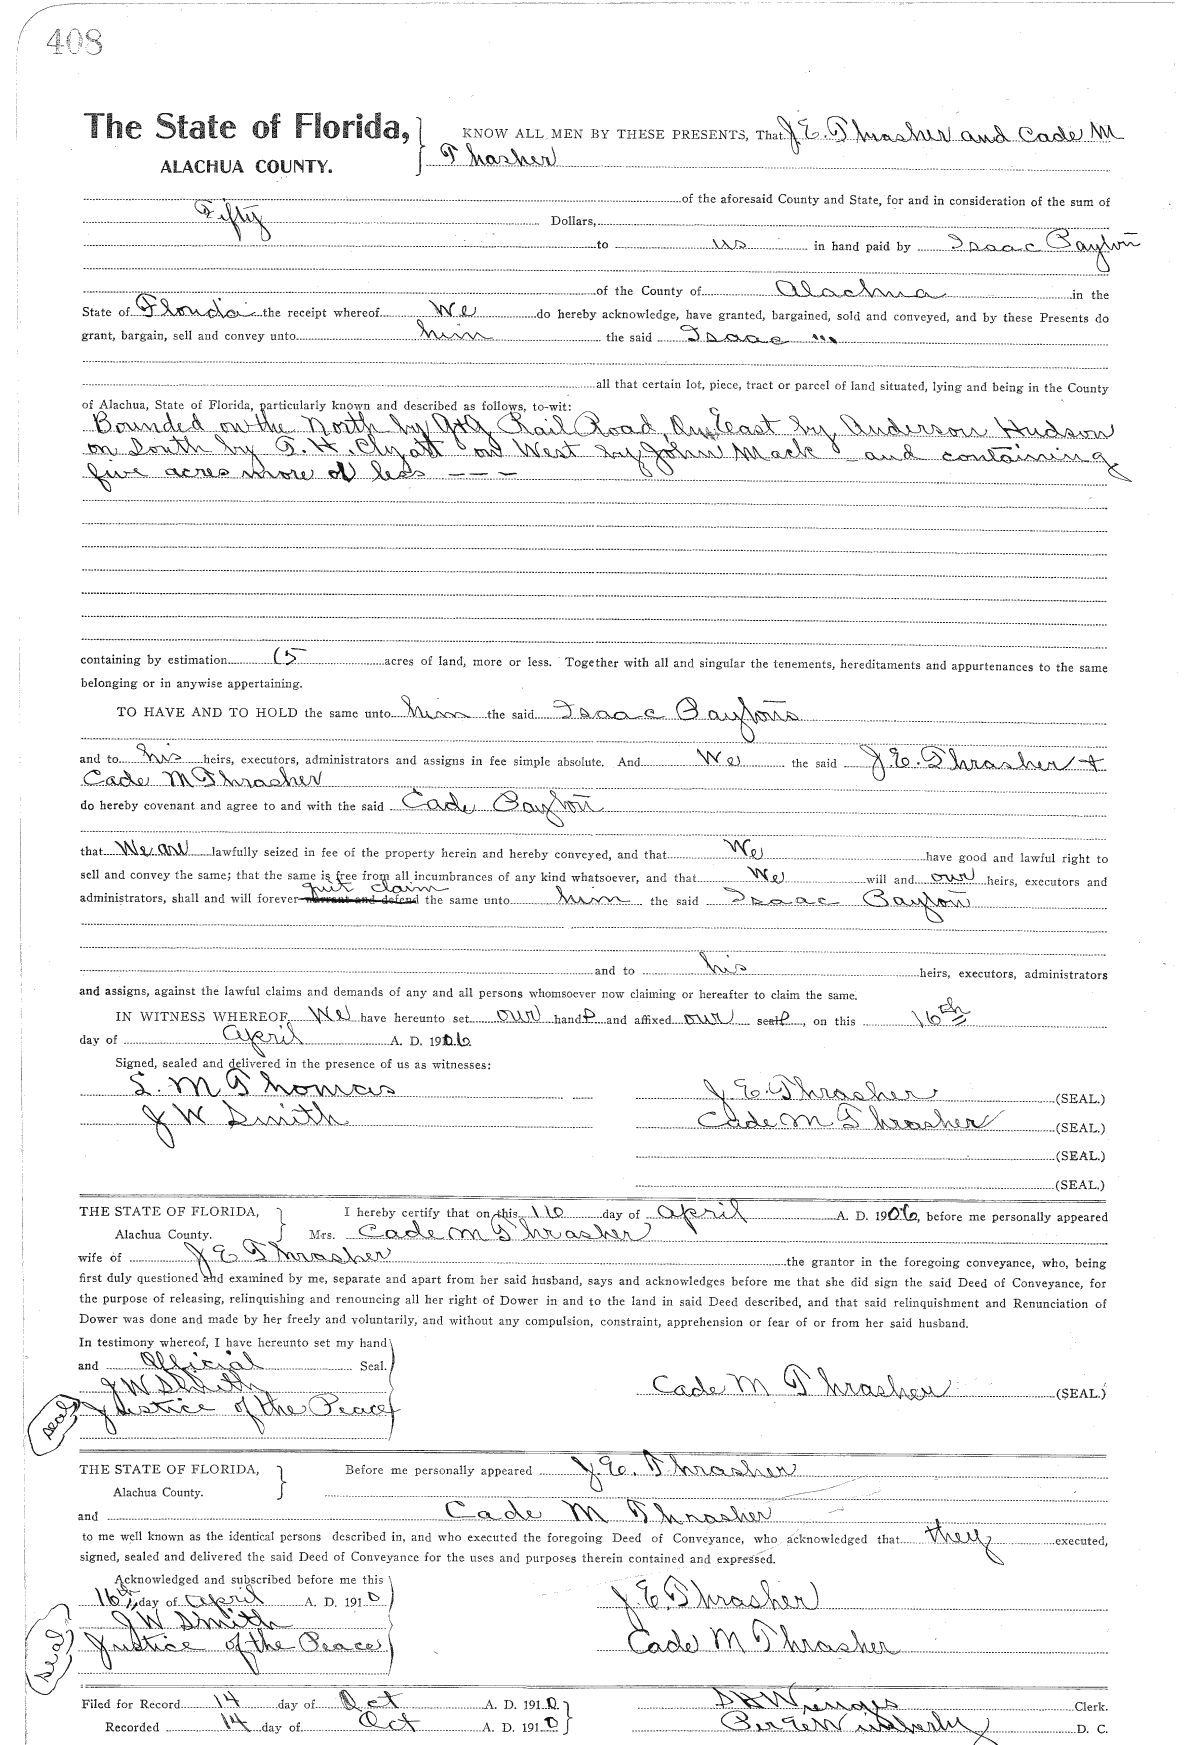 408
The State of Florida, KNOW ALL MEN BY THESE PRESENTS, That J. E. Thrasher and Cade M
ALACHUA COUNTY. Thasher
of the aforesaid County and State, for and in consideration of the sum of
Fifty Dollars,
to us in hand paid by Isaac Payton
of the County of Alachua in the
State of Florida the receipt whereof We do hereby acknowledge, have granted, bargained, sold and conveyed, and by these Presents do
grant, bargain, sell and convey unto him the said Isaac "
all that certain lot, piece, tract or parcel of land situated, lying and being in the County
of Alachua, State of Florida, particularly known and described as follows, to-wit:
Bounded on the North by G & G Rail Road, On East by Anderson Hudson
on South by F. H. Clyatt on West by John Mack and containing
five acres more or less - - -
containing by estimation (5 acres of land, more or less. Together with all and singular the tenements, hereditaments and appurtenances to the same
belonging or in anywise appertaining.
TO HAVE AND TO HOLD the same unto him the said Isaac Paytons
and to his heirs, executors, administrators and assigns in fee simple absolute. And We the said J. E. Thrasher +
Cade M Thrasher
do hereby covenant and agree to and with the said Cade Payton
that We are lawfully seized in fee of the property herein and hereby conveyed, and that We have good and lawful right to
sell and convey the same; that the same is free from all incumbrances of any kind whatsoever, and that We will and our heirs, executors and
quit claim
administrators, shall and will forever warrant and defend the same unto him the said Isaac Payton
and to his heirs, executors, administrators
and assigns, against the lawful claims and demands of any and all persons whomsoever now claiming or hereafter to claim the same.
IN WITNESS WHEREOF, We have hereunto set our hands and affixed our seals, on this 16th
day of April A. D. 1906
Signed, sealed and delivered in the presence of us as witnesses:
L. M Thomas J E. Thrasher (SEAL.)
J W Smith Cade M Thrasher (SEAL.)
(SEAL.)
(SEAL.)
THE STATE OF FLORIDA, I hereby certify that on this 16 day of April A. D. 1906, before me personally appeared
Alachua County. Mrs. Cade M Thrasher
wife of J E Thrasher the grantor in the foregoing conveyance, who, being
first duly questioned and examined by me, separate and apart from her said husband, says and acknowledges before me that she did sign the said Deed of Conveyance, for
the purpose of releasing, relinquishing and renouncing all her right of Dower in and to the land in said Deed described, and that said relinquishment and Renunciation of
Dower was done and made by her freely and voluntarily, and without any compulsion, constraint, apprehension or fear of or from her said husband.
In testimony whereof, I have hereunto set my hand
and Official Seal.
J W Smith Cade M Thrasher (SEAL.)
seal Justice of the Peace
THE STATE OF FLORIDA, Before me personally appeared J. E. Thrasher
Alachua County.
and Cade M Thrasher
to me well known as the identical persons described in, and who executed the foregoing Deed of Conveyance, who acknowledged that they executed,
signed, sealed and delivered the said Deed of Conveyance for the uses and purposes therein contained and expressed.
Acknowledged and subscribed before me this
16th day of April A. D. 1910 J E. Thrasher
J W Smith
seal Justice of the Peace Cade M Thrasher
Filed for Record 14 day of Oct A. D. 1910 Clerk.
Recorded 14 day of Oct A. D. 1910 D. C.